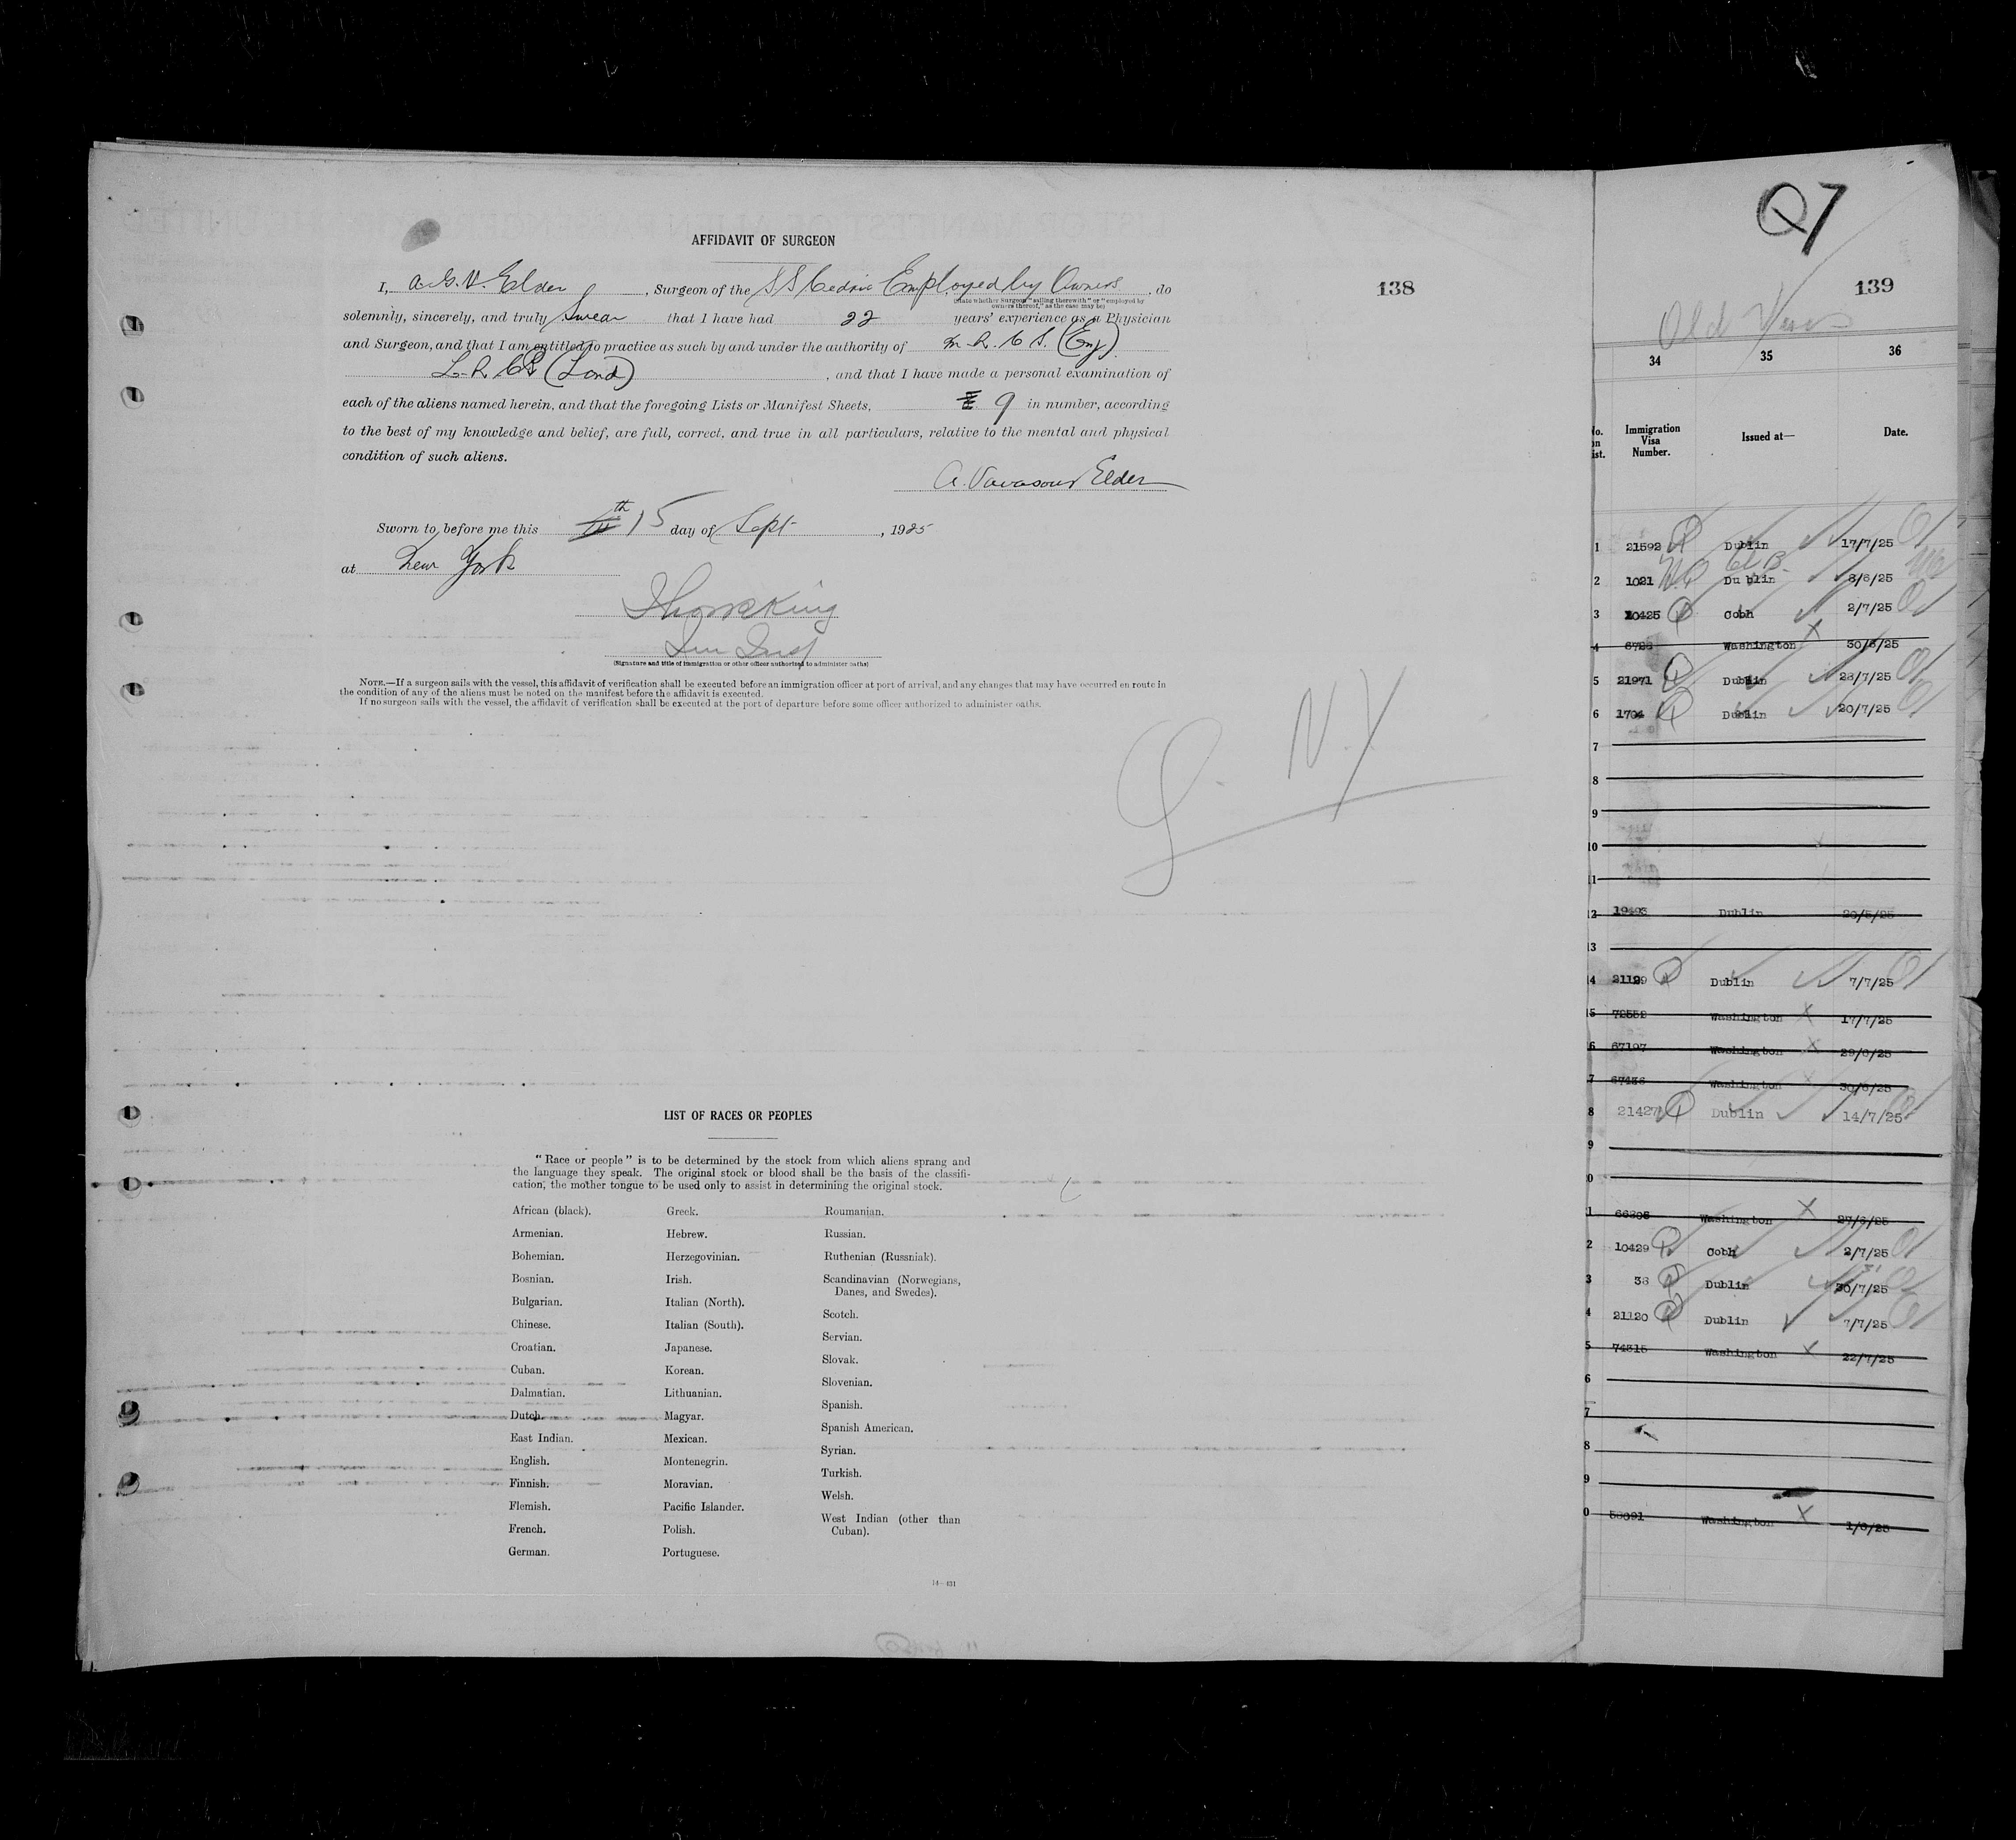 AFFIDAVIT OF SURGEON
I, A. G. V. Elder, Surgeon of the SS Cedric Employed by Owners, do
(State whether Surgeon "sailing therewith" or "employed by
owners thereof," as the case may be)
solemnly, sincerely, and truly Swear that I have had 22 years' experience as a Physician
and Surgeon, and that I am entitled to practice as such by and under the authority of M.R.C.S. (Eng)
L.R.C.P. (Lond), and that I have made a personal examination of
each of the aliens named herein, and that the foregoing Lists or Manifest Sheets, 9 in number, according
to the best of my knowledge and belief, are full, correct, and true in all particulars, relative to the mental and physical
condition of such aliens.
A. Vavasour Elder
Sworn to before me this 15th day of Sept, 1925
at New York
Imm Insp
(Signature and title of immigration or other officer authorized to administer oaths)
NOTE.—If a surgeon sails with the vessel, this affidavit of verification shall be executed before an immigration officer at port of arrival, and any changes that may have occurred en route in
the condition of any of the aliens must be noted on the manifest before the affidavit is executed.
If no surgeon sails with the vessel, the affidavit of verification shall be executed at the port of departure before some officer authorized to administer oaths.
138
N.Y
LIST OF RACES OR PEOPLES
"Race or people" is to be determined by the stock from which aliens sprang and
the language they speak. The original stock or blood shall be the basis of the classifi-
cation, the mother tongue to be used only to assist in determining the original stock.
African (black).
Armenian.
Bohemian.
Bosnian.
Bulgarian.
Chinese.
Croatian.
Cuban.
Dalmatian.
Dutch.
East Indian.
English.
Finnish.
Flemish.
French.
German.
Greek.
Hebrew.
Herzegovinian.
Irish.
Italian (North).
Italian (South).
Japanese.
Korean.
Lithuanian.
Magyar.
Mexican.
Montenegrin.
Moravian.
Pacific Islander.
Polish.
Portuguese.
Roumanian.
Russian.
Ruthenian (Russniak).
Scandinavian (Norwegians,
Danes, and Swedes).
Scotch.
Servian.
Slovak.
Slovenian.
Spanish.
Spanish American.
Syrian.
Turkish.
Welsh.
West Indian (other than
Cuban).
14—431
139
Old
34 35 36
No. on List. Immigration Visa Number. Issued at— Date.
1 21592 Dublin 17/7/25
2 1021 Dublin 8/6/25
3 10425 Cobh 2/7/25
4 Washington 30/6/25
5 21971 Dublin 28/7/25
6 1704 Dublin 20/7/25
7
8
9
10
11
12 19493 Dublin 20/5/25
13
4 21129 Dublin 7/7/25
5 72552 Washington 17/7/25
6 67197 Washington 29/6/25
7 67436 Washington 30/6/25
8 21427 Dublin 14/7/25
9
0
1 66306 Washington 27/6/25
2 10429 Cobh 2/7/25
3 38 Dublin 30/7/25
4 21120 Dublin 7/7/25
5 74315 Washington 22/7/25
6
7
8
9
0 Washington 1/6/25